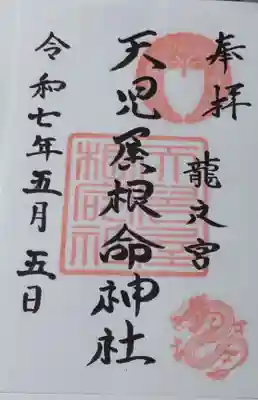 奉拝
龍之宮
天児屋根命神社
令和七年五月五日